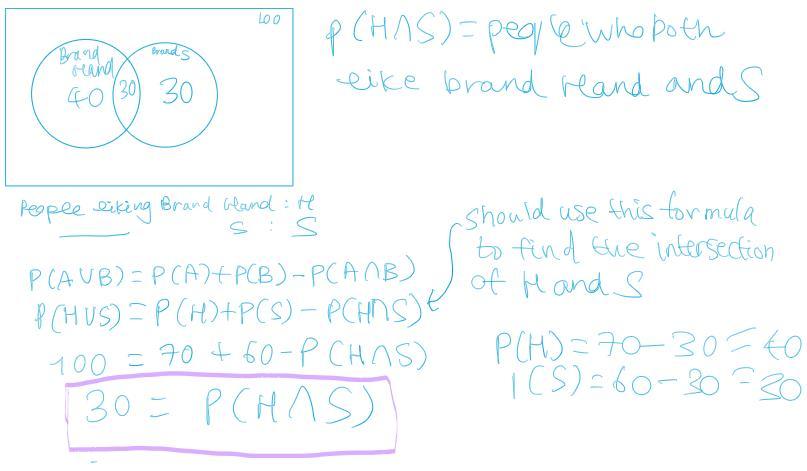 100
Brand
Hand
Brand S
40
30
30
P(H∩S) = people who both
like brand Hand and S
People liking Brand Hand : H
S : S
P(A∪B) = P(A)+P(B)-P(A∩B)
P(H∪S) = P(H)+P(S) - P(H∩S)
100 = 70 + 60 - P(H∩S)
30 = P(H∩S)
should use this formula
to find the intersection
of H and S
P(H) = 70-30 = 40
P(S) = 60-30 = 30